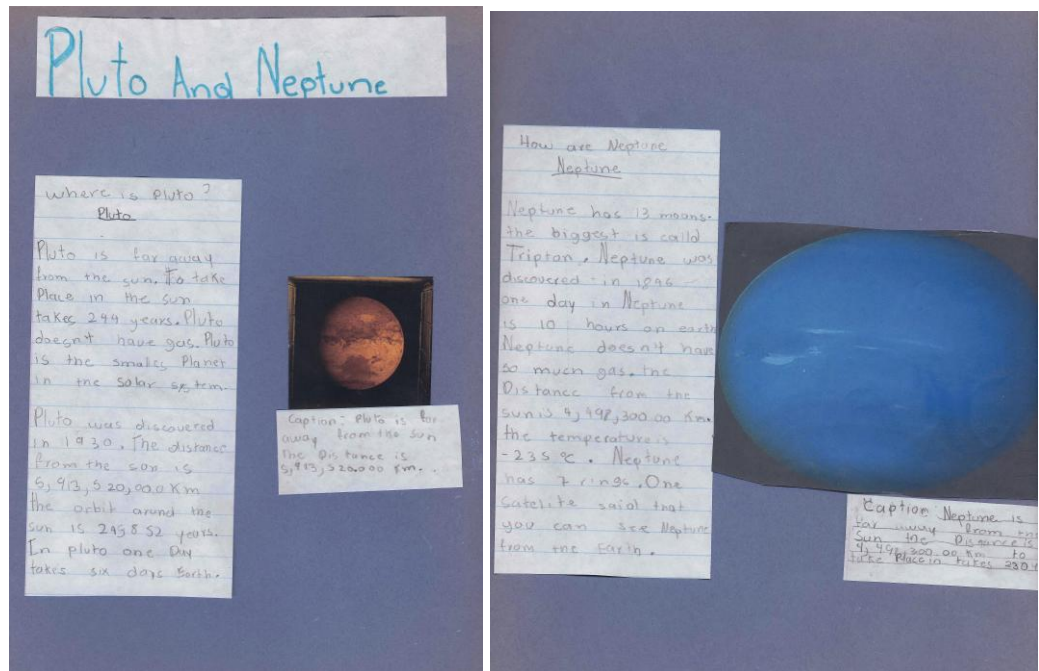 Pluto And Neptune
Where is Pluto?
Pluto
Pluto is far away
from the sun. To take
Place in the sun
takes 299 years. Pluto
doesn't have gas. Pluto
is the smalles Planet
in the solar system.
Pluto was discovered
in 1930. The distance
from the son is
5,913,520,000 Km
the orbit arund the
sun is 245852 years.
In pluto one Day
takes six days Earth.
Caption: Pluto is far
away from the sun
The Distance is
5,913,520.000 Km.
How are Neptune
Neptune
Neptune has 13 moons.
the biggest is calld
Triptan. Neptune was
discovered in 1846
one day in Neptune
is 10 hours on earth
Neptune doesn't have
so much gas. the
Distance from the
sun is 4,498,300.00 Km.
the temperature is
-235 °C. Neptune
has 7 rings. One
Satelite said that
you can see Neptune
from the Earth.
Caption Neptune is
far away from the
sun the Distance is
4,498,300.00 Km to
take place in takes 230